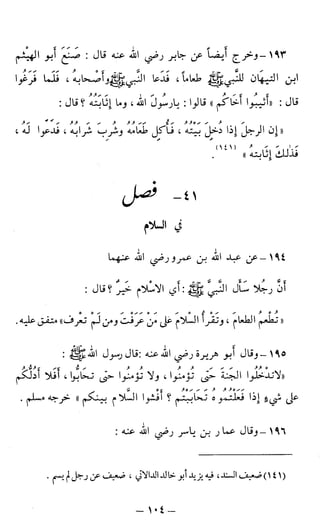 ١٩٣ - وخرج أيضاً عن جابر رضي الله عنه قال : صَنَعَ أبو الهيثم
ابن التيهان للنَّبي ﷺ طعاماً ، فَدَعا النَّبيﷺ وأصْحابَهُ ، فَلَما فَرَغُوا
قال : «أَثيبُوا أَخَاكُمْ» قالوا : يارسُولَ الله ، وما إثَابَتُهُ ؟ قال :
« إن الرجلَ إذا دُخِلَ بَيْتُهُ ، فَأُكِلَ طَعَامُهُ وشُرِبَ شَرابُهُ ، فَدَعَوْا لَهُ ،
فَذلكَ إثَابَتهُ »(١٤١).
٤١ - فصل
في السلام
١٩٤ - عن عبد الله بن عمرو رضي الله عنهما
أنَّ رجُلا سَأل النَّبيَّ ﷺ : أي الاسْلام خَيرٌ ؟ قال :
«تُطْعِمُ الطعامَ ، وتَقْرأُ السَّلامَ على مَنْ عَرفْتَ ومن لَمْ تعْرف» متفق عليه .
١٩٥ - وقال أبو هريرة رضي الله عنه : قال رسول الله ﷺ :
«لاتدْخُلوا الجنَّةَ حتَّى تُؤمنُوا ، ولا تُؤمنُوا حتى تحَابُّوا ، أفَلا أدلُّكُم
على شيءٍ إذا فَعلْتُموُهُ تحَابَبْتُم ؟ أفْشُوا السَّلام بينكُم » خرجه مسلم .
١٩٦ - وقال عمار بن ياسر رضي الله عنه :
(١٤١) ضعيف السند ، فيه يزيد أبو خالد الدالاني ، ضعيف عن رجل لم يسم .
— ١٠٤ —